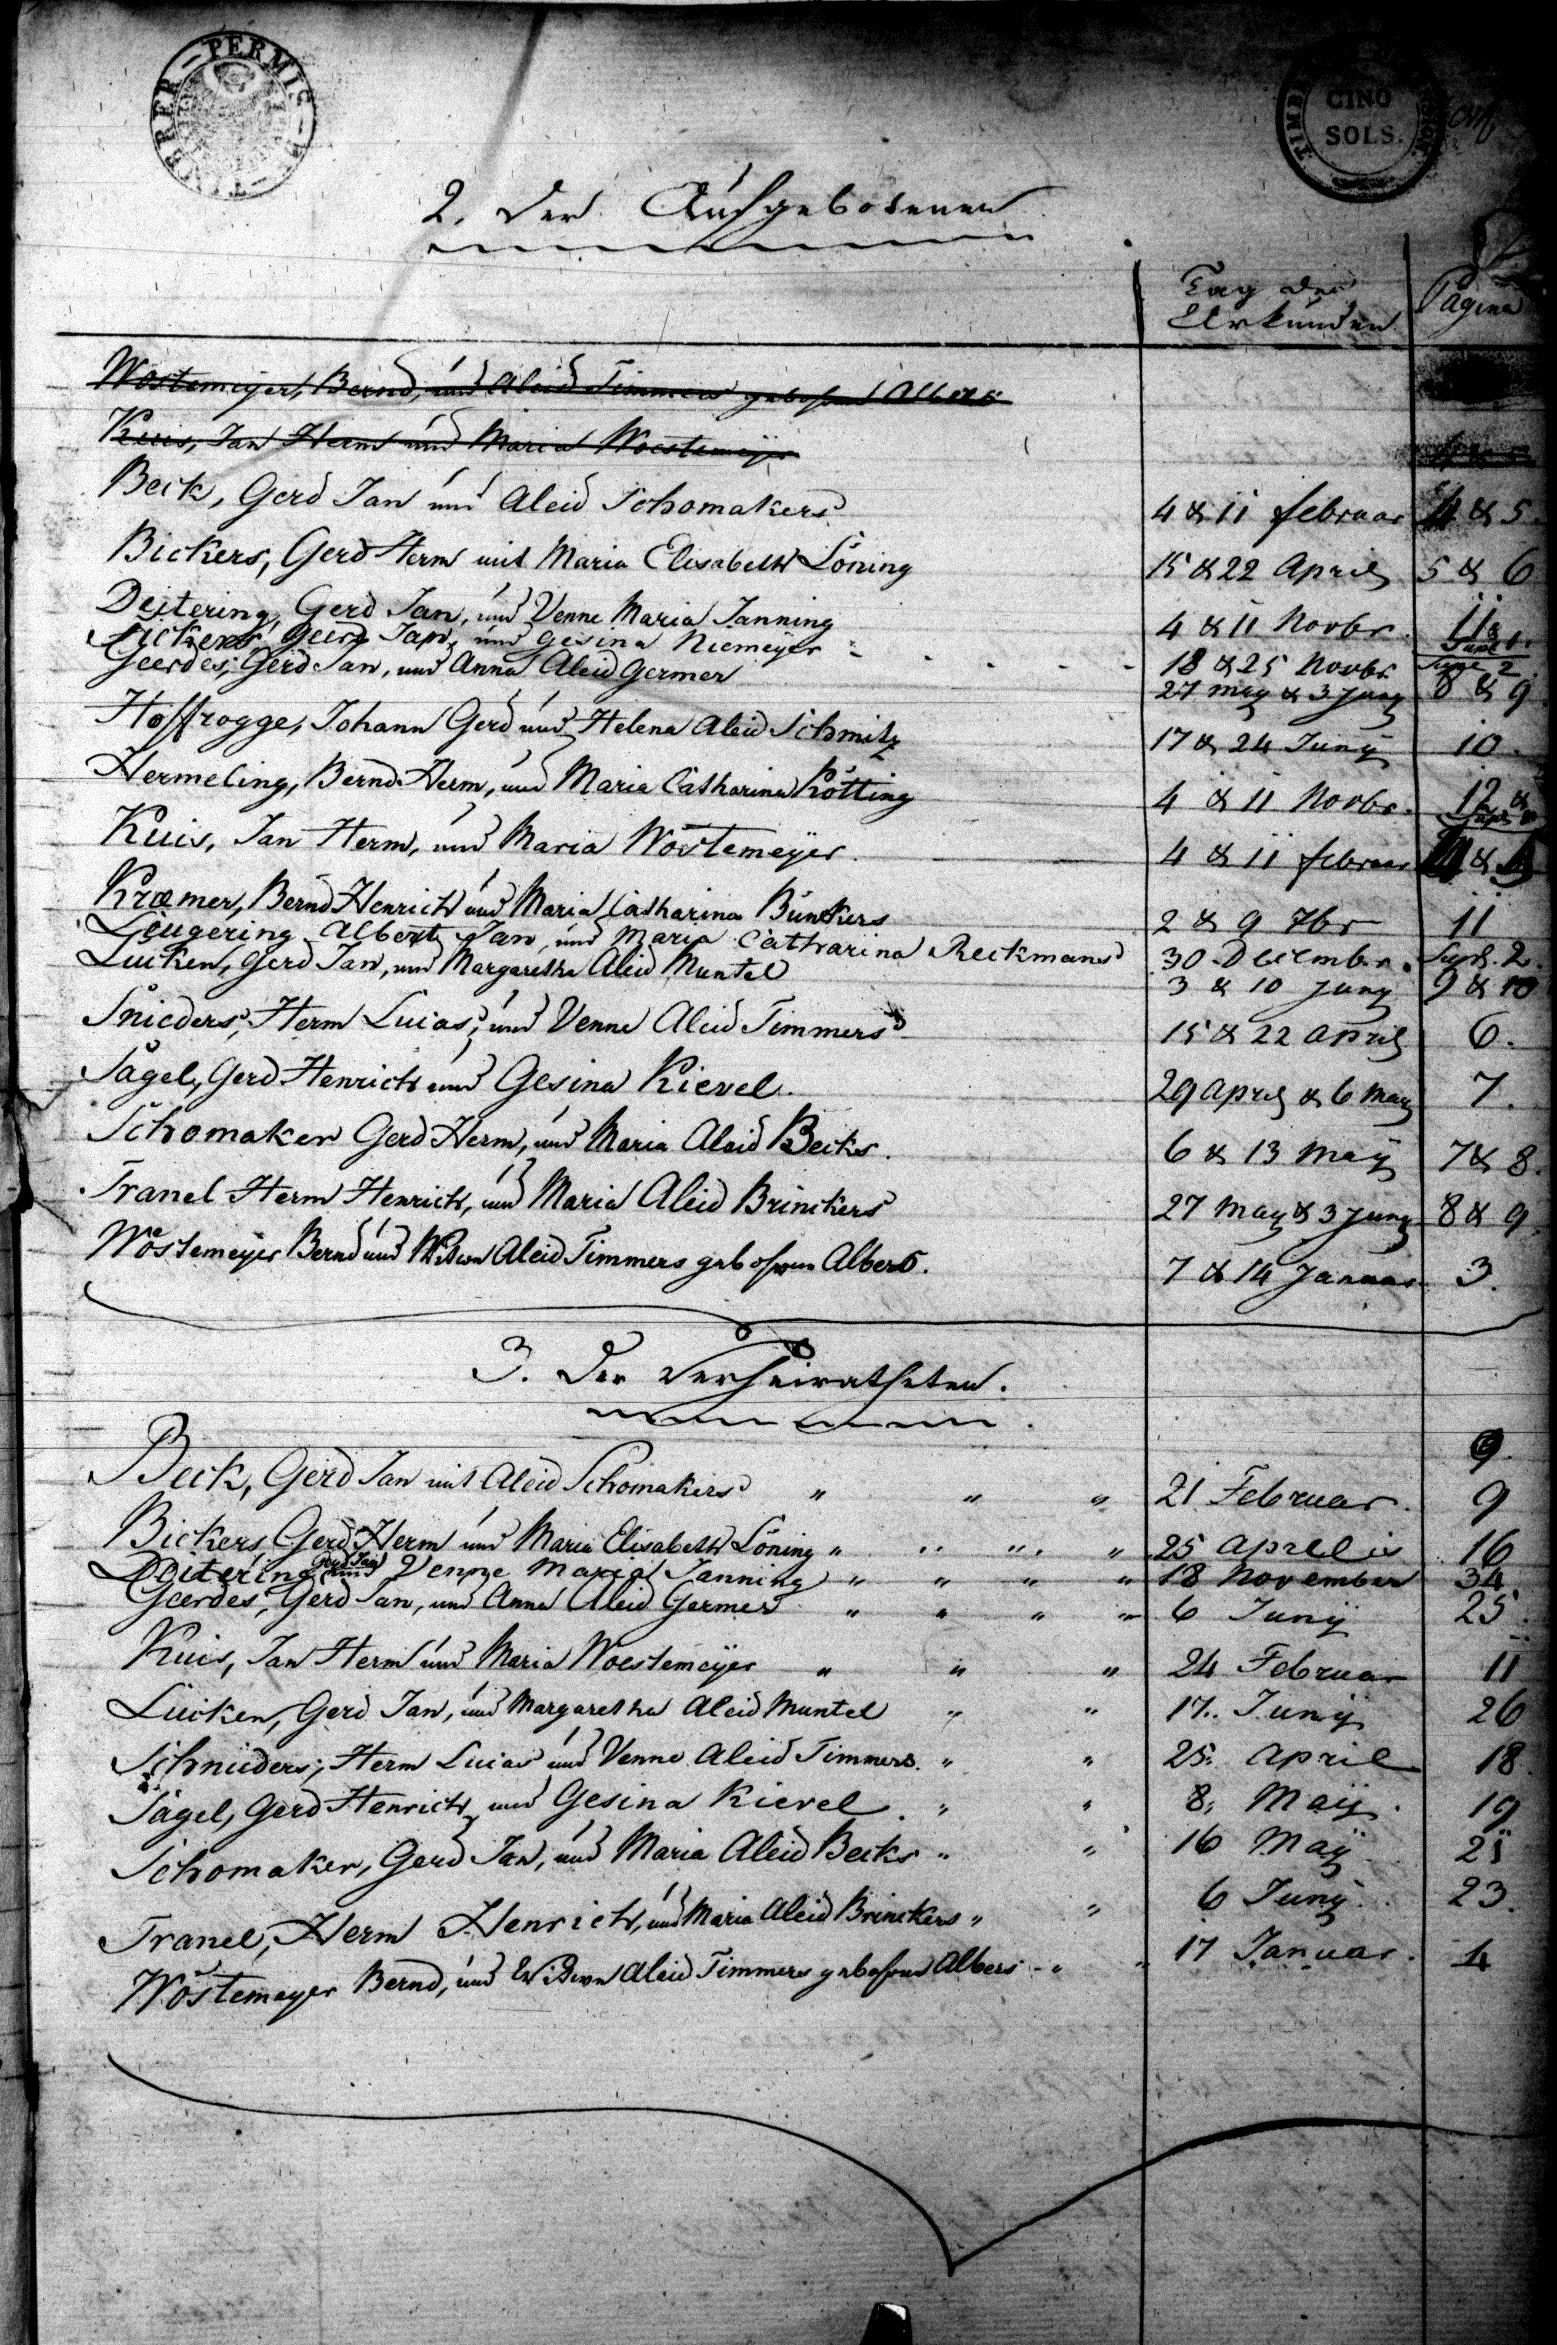 TIMBER — PERMIS — DE
CINQ
SOLS.
2. Der Aufgebotenen
Tag der Urkunden Pagina
Wöstemeijer, Bernd, und Aleid Timmers gebohrne Albers
Kuis, Jan Herm und Maria Woestemeijer
Beck, Gerd Jan und Aleid Schomakers 4 & 11 februar 4 & 5.
Bickers, Gerd Herm mit Maria Elisabeth Löning 15 & 22 April 5 & 6
Deitering, Gerd Jan, und Venne Maria Janning 4 & 11 Novbr. 11 & Supl 1.
Fickers Geerd Jan, und Gesina Niemeÿer - - - - - 18 & 25 Novbr. Supl 2
Geerdes, Gerd Jan, und Anna Aleid Germer 27 maÿ & 3 Junÿ 8 & 9
Hoffrogge, Johann Gerd und Helena Aleid Schmitz 17 & 24 Junÿ 10.
Hermeling, Bernd Herm, und Maria Catharina Rötting 4 & 11 Novbr. 12 &
Kuis, Jan Herm, und Maria Wöstemeÿer. 4 & 11 februar &
Kræmer, Bernd Henrich und Maria Catharina Bünkers 2 & 9 7br 11
Leugering Albert Jan, und Maria Catharina Reckmans 30 December. Supl. 2.
Lücken, Gerd Jan, und Margaretha Aleid Muntel 3 & 10 Junÿ 9 & 10
Snieders, Herm Lucas, und Venne Aleid Timmers 15 & 22 April 6.
Sågel, Gerd Henrich und Gesina Kievel. 29 April & 6 Maÿ 7.
Schomaker Gerd Herm, und Maria Aleid Becks. 6 & 13 Maÿ 7 & 8.
Tranel Herm Henrich, und Maria Aleid Brinckers 27 Maÿ & 3 Junÿ 8 & 9.
Wöstemeÿer Bernd und Wittwe Aleid Timmers gebohrne Albers. 7 & 14 Januar 3.
3. Der Verheiratheten.
9.
Beck, Gerd Jan mit Aleid Schomakers " " " 21 Februar. 9
Bickers Gerd Herm und Maria Elisabeth Löning " " " " 25 Aprilis 16
Deitering Gerd Jan und Venne Maria Janning " " " " 18 November 34
Geerdes, Gerd Jan, und Anna Aleid Germer " " " " 6 Junÿ 25.
Kuis, Jan Herm und Maria Woestemeÿer " " " 24 Februar 11
Lücken, Gerd Jan, und Margaretha Aleid Muntel " " 17. Junÿ 26
Schnieders, Herm Lucas und Venne Aleid Timmers. " " 25. April 18.
Sågel, Gerd Henrich und Gesina Kievel. " " 8. Maÿ. 19
Schomaker, Gerd Jan, und Maria Aleid Becks " " 16 Maÿ 21
Tranel, Herm Henrich, und Maria Aleid Brinckers " " 6 Junÿ. 23.
Wöstemeyer Bernd, und Wittwe Aleid Timmers gebohrne Albers - " " 17 Januar. 4